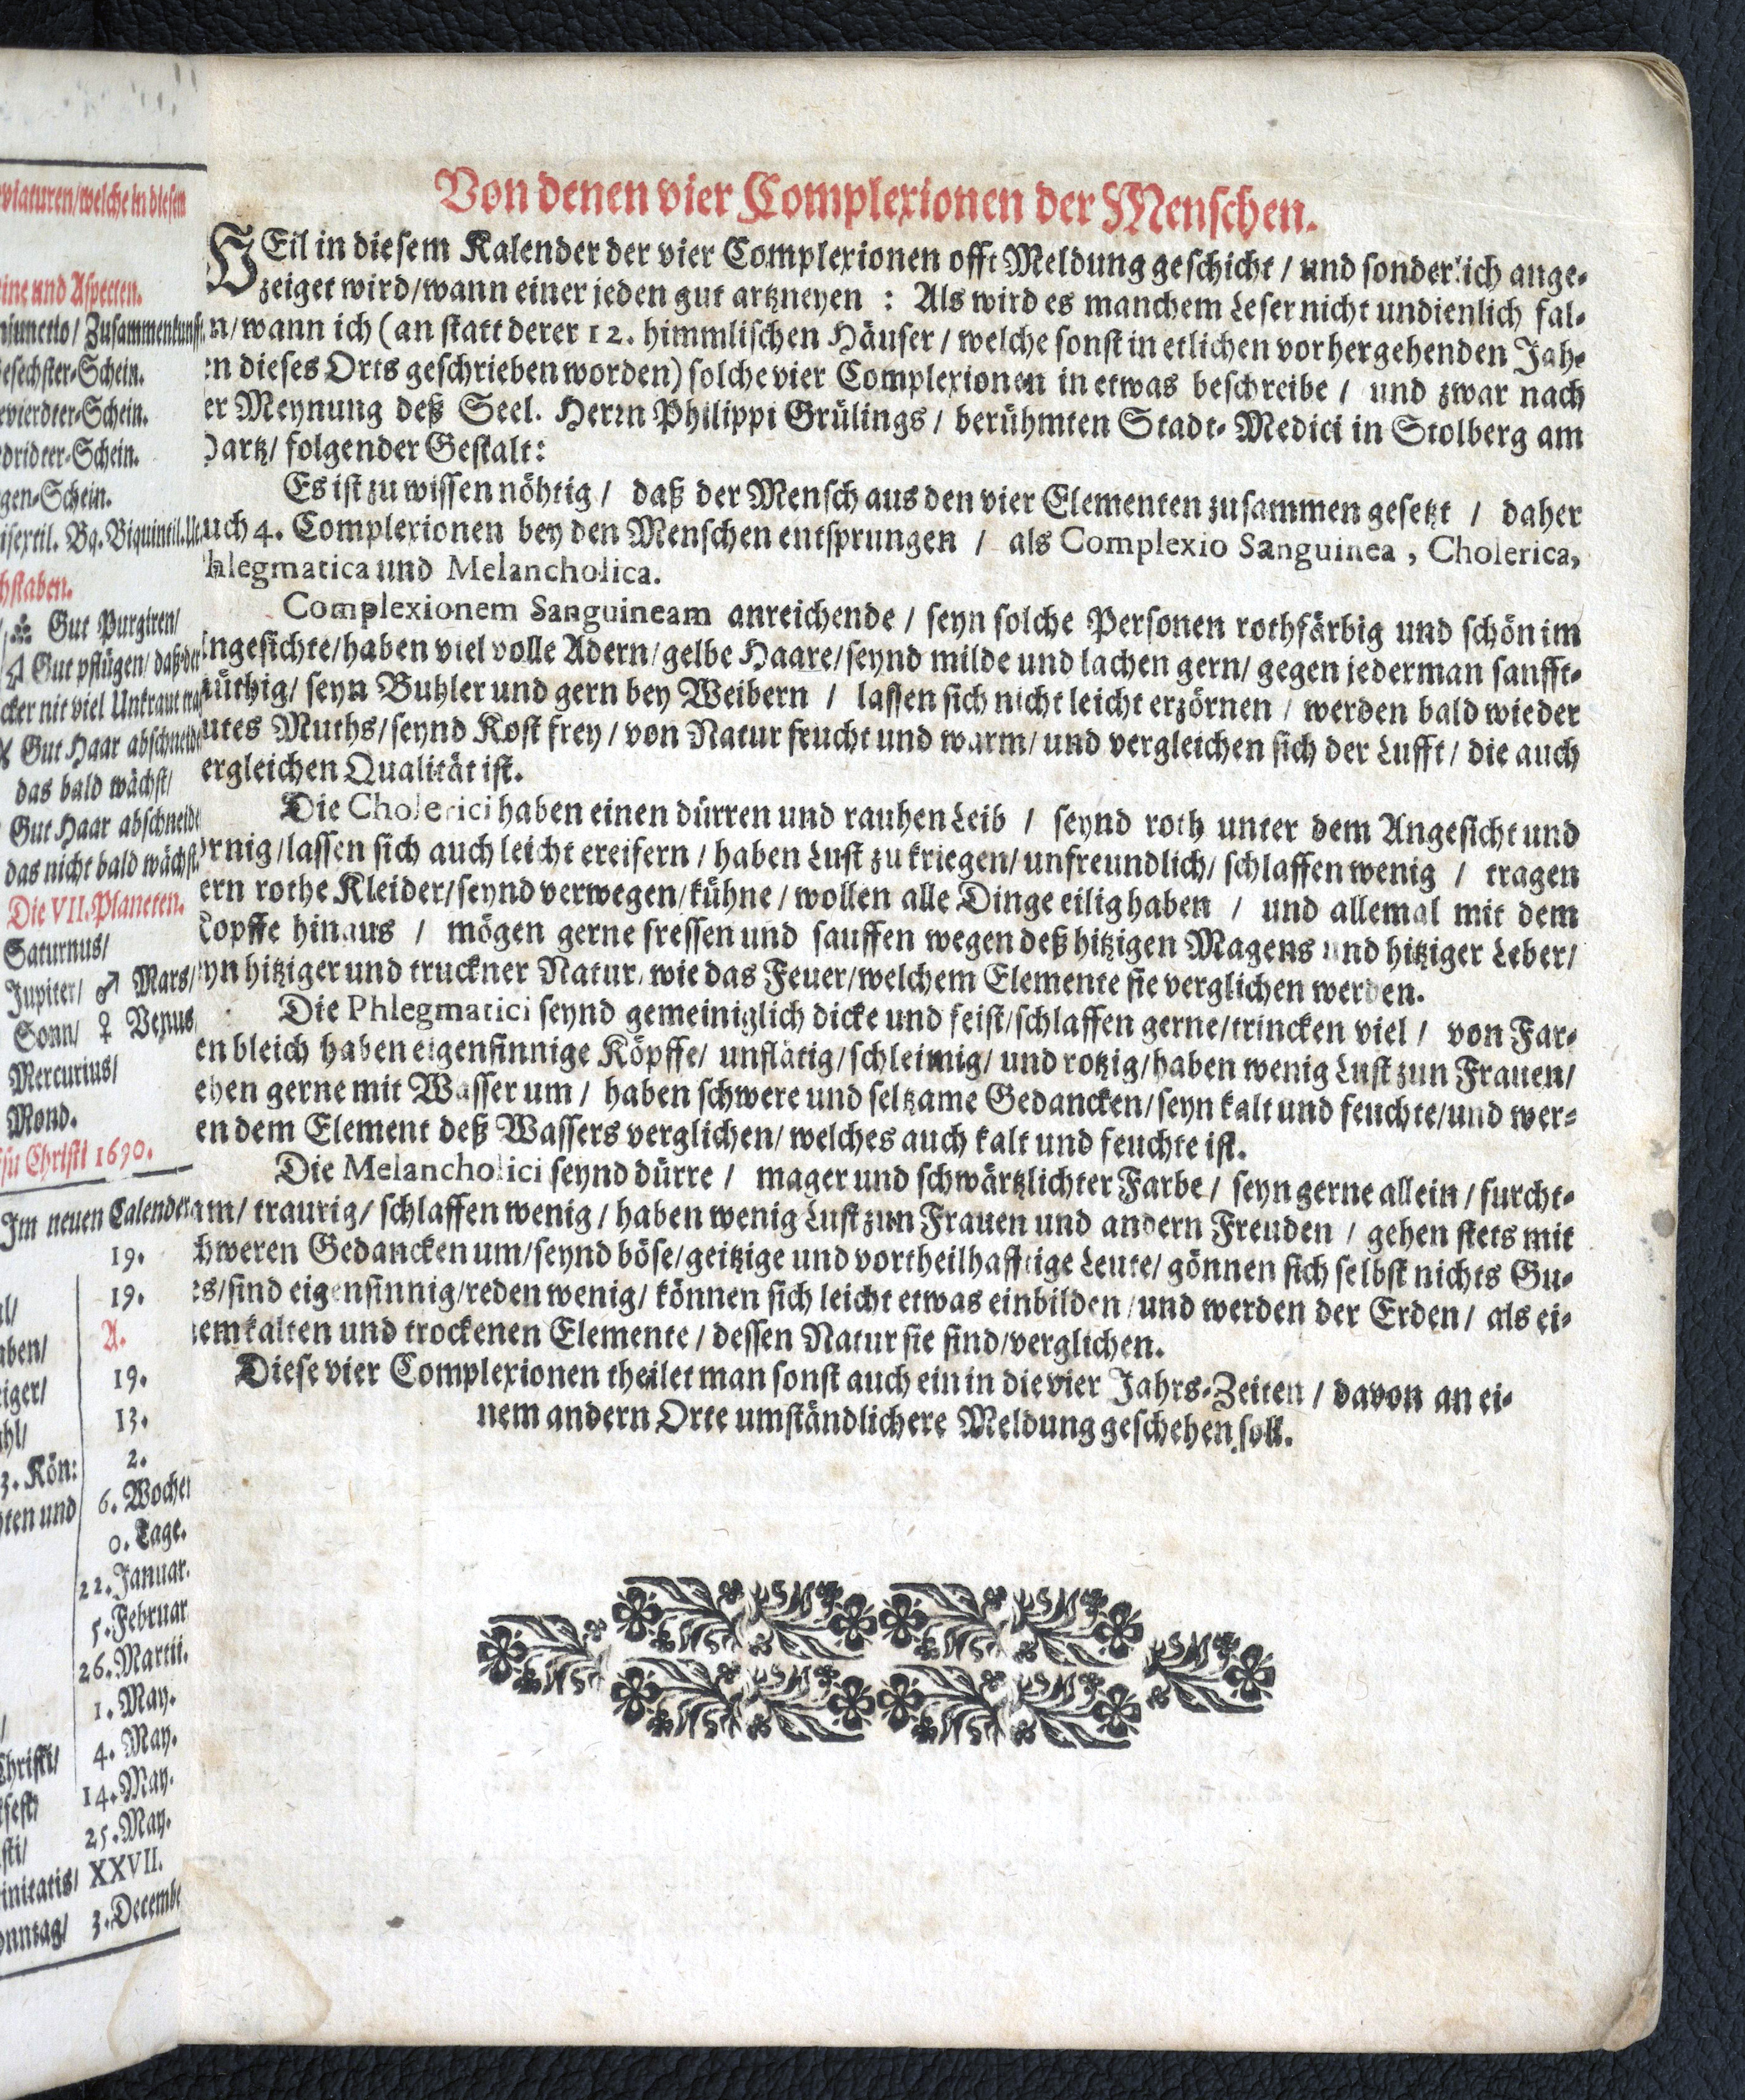 viaturen/welche in diesem
ine und Aspecten.
niunctio/ Zusammenkunfft.
esechster-Schein.
evierdter-Schein.
edridter-Schein.
gen-Schein.
isextil. Bq. Biquintil.
hstaben.
Gut Purgiren/
Gut pflügen/ daß der
cker nit viel Unkraut
Gut Haar abschneid
das bald wächst/
Gut Haar abschneide
das nicht bald wächst.
Die VII. Planeten.
Saturnus/
Jupiter/ ♂ Mars/
Sonn/ ♀ Venus
Mercurius/
Mond.
su Christi 1690.
Im neuen Calender
19.
19.
aben/ A.
eiger/ 19.
ahl/ 13.
3. Kön: 2.
ten und 6. Woche
0. Tage.
22. Januar.
5. Februar
26. Martii.
1. May.
Christi/ 4. May.
14. May.
25. May.
initatis/ XXVII.
onntag/ 3. Decembe
Von denen vier Complexionen der Menschen.
WEil in diesem Kalender der vier Complexionen offt Meldung geschicht / und sonderlich ange-
zeiget wird/wann einer jeden gut artzneyen : Als wird es manchem Leser nicht undienlich fal-
n/wann ich (an statt derer 12. himmlischen Häuser / welche sonst in etlichen vorhergehenden Jah-
en dieses Orts geschrieben worden) solche vier Complexionen in etwas beschreibe / und zwar nach
er Meynung deß Seel. Herrn Philippi Grülings / berühmten Stadt-Medici in Stolberg am
Hartz/ folgender Gestalt:
Es ist zu wissen nöhtig / daß der Mensch aus den vier Elementen zusammen gesetzt / daher
auch 4. Complexionen bey den Menschen entsprungen / als Complexio Sanguinea , Cholerica,
hlegmatica und Melancholica.
Complexionem Sanguineam anreichende / seyn solche Personen rothfärbig und schön im
Angesichte/haben viel volle Adern/gelbe Haare/seynd milde und lachen gern/ gegen jederman sanfft-
müthig/ seyn Buhler und gern bey Weibern / lassen sich nicht leicht erzörnen / werden bald wieder
utes Muths/seynd Kost frey / von Natur feucht und warm/ und vergleichen sich der Lufft / die auch
ergleichen Qualität ist.
Die Cholerici haben einen dürren und rauhen Leib / seynd roth unter dem Angesicht und
örnig/lassen sich auch leicht ereifern / haben Lust zu kriegen/ unfreundlich/ schlaffen wenig / tragen
ern rothe Kleider/seynd verwegen/kühne / wollen alle Dinge eilig haben / und allemal mit dem
Kopffe hinaus / mögen gerne fressen und sauffen wegen deß hitzigen Magens und hitziger Leber/
eyn hitziger und truckner Natur, wie das Feuer/welchem Elemente sie verglichen werden.
Die Phlegmatici seynd gemeiniglich dicke und feist/schlaffen gerne/trincken viel / von Far-
en bleich haben eigensinnige Köpffe/ unflätig/schleimig/ und rotzig/haben wenig Lust zun Frauen/
ehen gerne mit Wasser um / haben schwere und seltzame Gedancken/seyn kalt und feuchte/und wer-
en dem Element deß Wassers verglichen/ welches auch kalt und feuchte ist.
Die Melancholici seynd dürre / mager und schwärtzlichter Farbe / seyn gerne allein / furcht-
am/ traurig/ schlaffen wenig / haben wenig Lust zun Frauen und andern Freuden / gehen stets mit
hweren Gedancken um/seynd böse/geitzige und vortheilhafftige Leute/ gönnen sich selbst nichts Gu-
es/sind eigensinnig/reden wenig/ können sich leicht etwas einbilden /und werden der Erden / als ei-
nem kalten und trockenen Elemente / dessen Natur sie sind/verglichen.
Diese vier Complexionen theilet man sonst auch ein in die vier Jahrs-Zeiten / davon an ei-
nem andern Orte umständlichere Meldung geschehen soll.